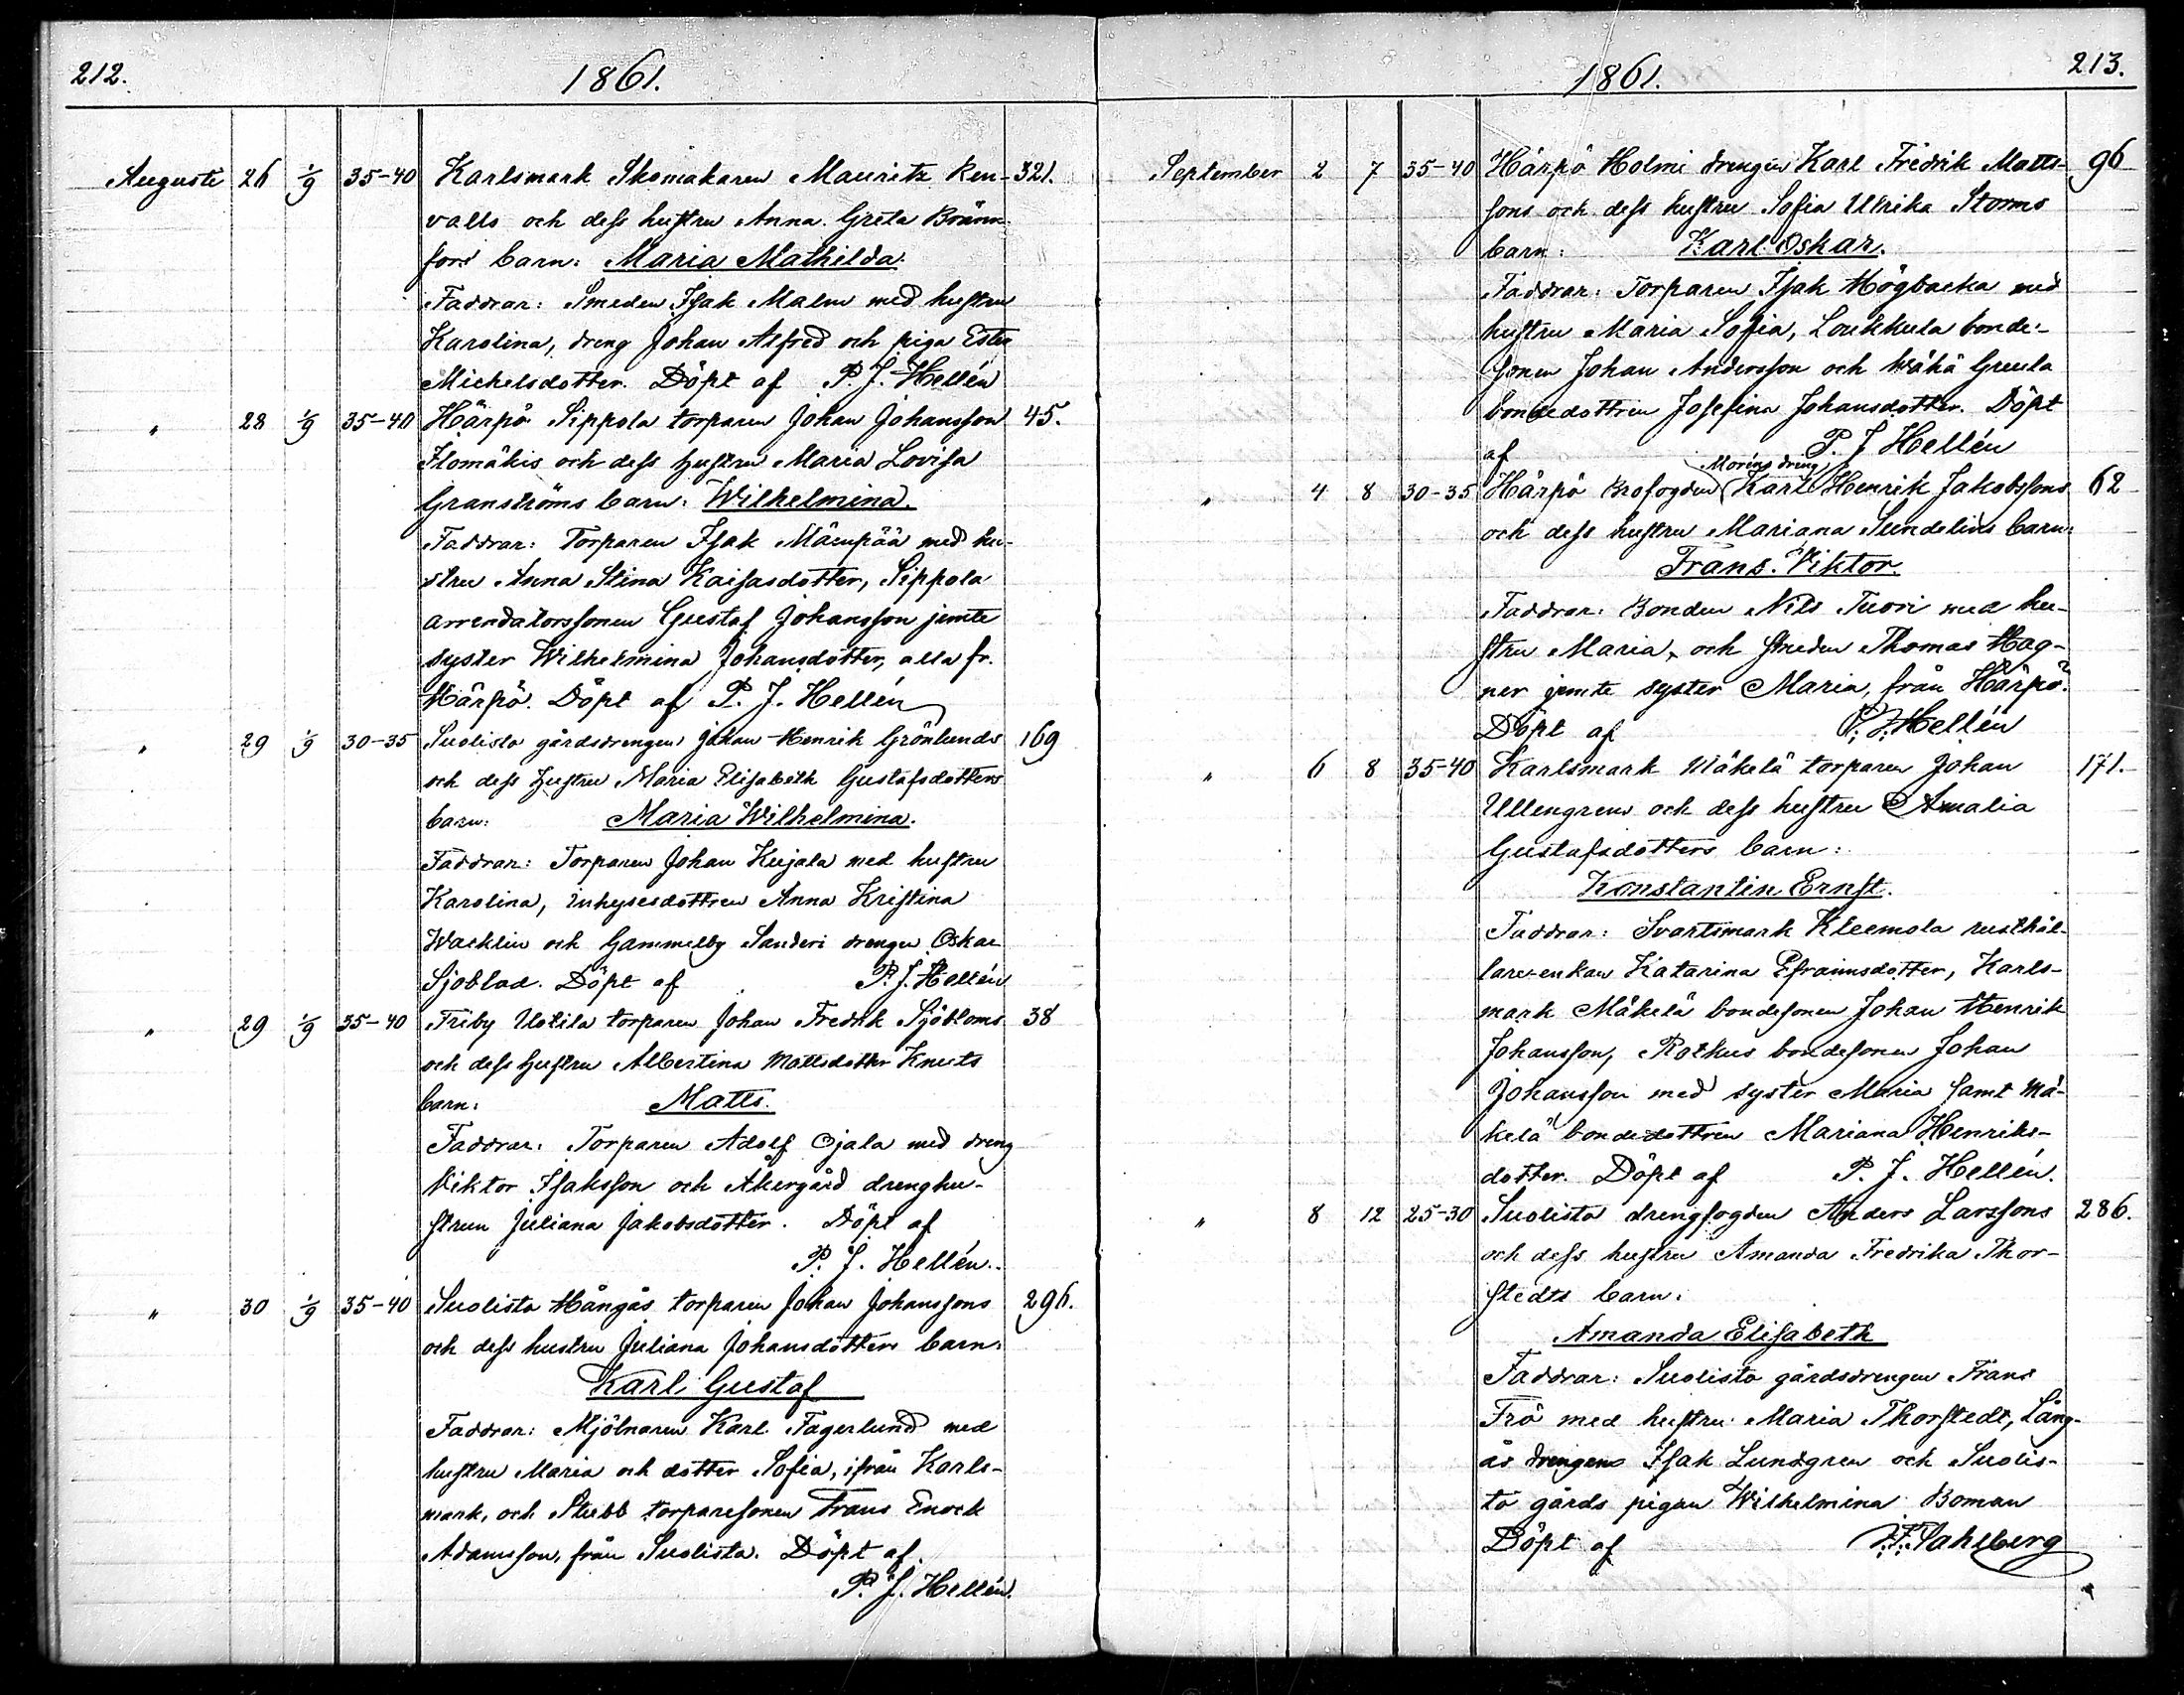 212.
1861.
Augusti 26 1/9 35-40 Karlsmark Skomakaren Mauritz Ren- 321.
valls och dess hustru Anna Greta Bränn-
fors barn: Maria Mathilda.
Faddrar: Smeden Isak Malm med hustru
Karolina, dreng Johan Alfred och piga Ester
Michelsdotter. Döpt af P. J. Hellén
" 28 1/9 35-40 Härpö Sippola torparen Johan Johansson 45.
Ilomäkis och dess hustru Maria Lovisa
Granströms barn: Wilhelmina.
Faddrar: Torparen Isak Mäenpää med hu-
stru Anna Stina Kaisasdotter, Sippola
arrendatorssonen Gustaf Johansson jemte
syster Wilhelmina Johansdotter, alla fr.
Härpö. Döpt af P. J. Hellén
" 29 1/9 30-35 Suolisto gårdsdrengen Johan Henrik Grönlunds 169
och dess hustru Maria Elisabeth Gustafsdotters
barn: Maria Wilhelmina.
Faddrar: Torparen Johan Kujala med hustru
Karolina, inhysesdottren Anna Kristina
Wacklin och Gammelby Sanderi drengen Oskar
Sjöblad. Döpt af P. J. Hellén
" 29 1/9 35-40 Friby Uotila torparen Johan Fredrik Sjöbloms 38
och dess hustru Albertina Mattsdotter Knuts
barn: Matts.
Faddrar: Torparen Adolf Ojala med dreng
Viktor Isaksson och Åkergård drenghu-
strun Juliana Jakobsdotter. Döpt af
P. J. Hellén.
" 30 1/9 35-40 Suolisto Hångås torparen Johan Johanssons 296.
och dess hustru Juliana Johansdotters barn:
Karl Gustaf
Faddrar: Mjölnaren Karl Fagerlund med
hustru Maria och dotter Sofia, ifrån Karls-
mark, och Stubb torparesonen Frans Enock
Adamsson, från Suolisto. Döpt af
P. J. Hellén.
1861.
213.
September 2 7 35-40 Härpö Holmi drengen Karl Fredrik Matts- 96
sons och dess hustru Sofia Ulrika Storms
barn: Karl Oskar.
Faddrar: Torparen Isak Högbacka med
hustru Maria Sofia, Loukkula bonde-
sonen Johan Andersson och Wähä Greula
bondedottren Josefina Johansdotter. Döpt
af P. J Hellén
Moréns dreng
" 4 8 30-35 Härpö Brofogden Karl Henrik Jakobssons 62
och dess hustru Mariana Sundelins barn:
Frans Viktor.
Faddrar: Bonden Nils Tuori med hu-
stru Maria, och smeden Thomas Hag-
ner jemte syster Maria, från Härpö.
Döpt af P. J. Hellén
" 6 8 35-40 Karlsmark Mäkelä torparen Johan 171.
Ullengrens och dess hustru Amalia
Gustafsdotters barn:
Konstantin Ernst.
Faddrar: Svartsmark Kleemola rusthål-
lare-enkan Katarina Efraimsdotter, Karls-
mark Mäkelä bondesonen Johan Henrik
Johansson, Rotkus bondesonen Johan
Johansson med syster Maria samt Mä-
kelä bondedottren Mariana Henriks-
dotter. Döpt af P. J. Hellén.
" 8 12 25-30 Suolisto drengfogden Anders Larssons 286.
och dess hustru Amanda Fredrika Thor-
stedts barn:
Amanda Elisabeth
Faddrar: Suolisto gårdsdrengen Frans
Frö med hustru Maria Thorstedt, Lång-
ås drengen Isak Lundgren och Suolis-
to gårds pigan Wilhelmina Boman
Döpt af F. F. Sahlberg